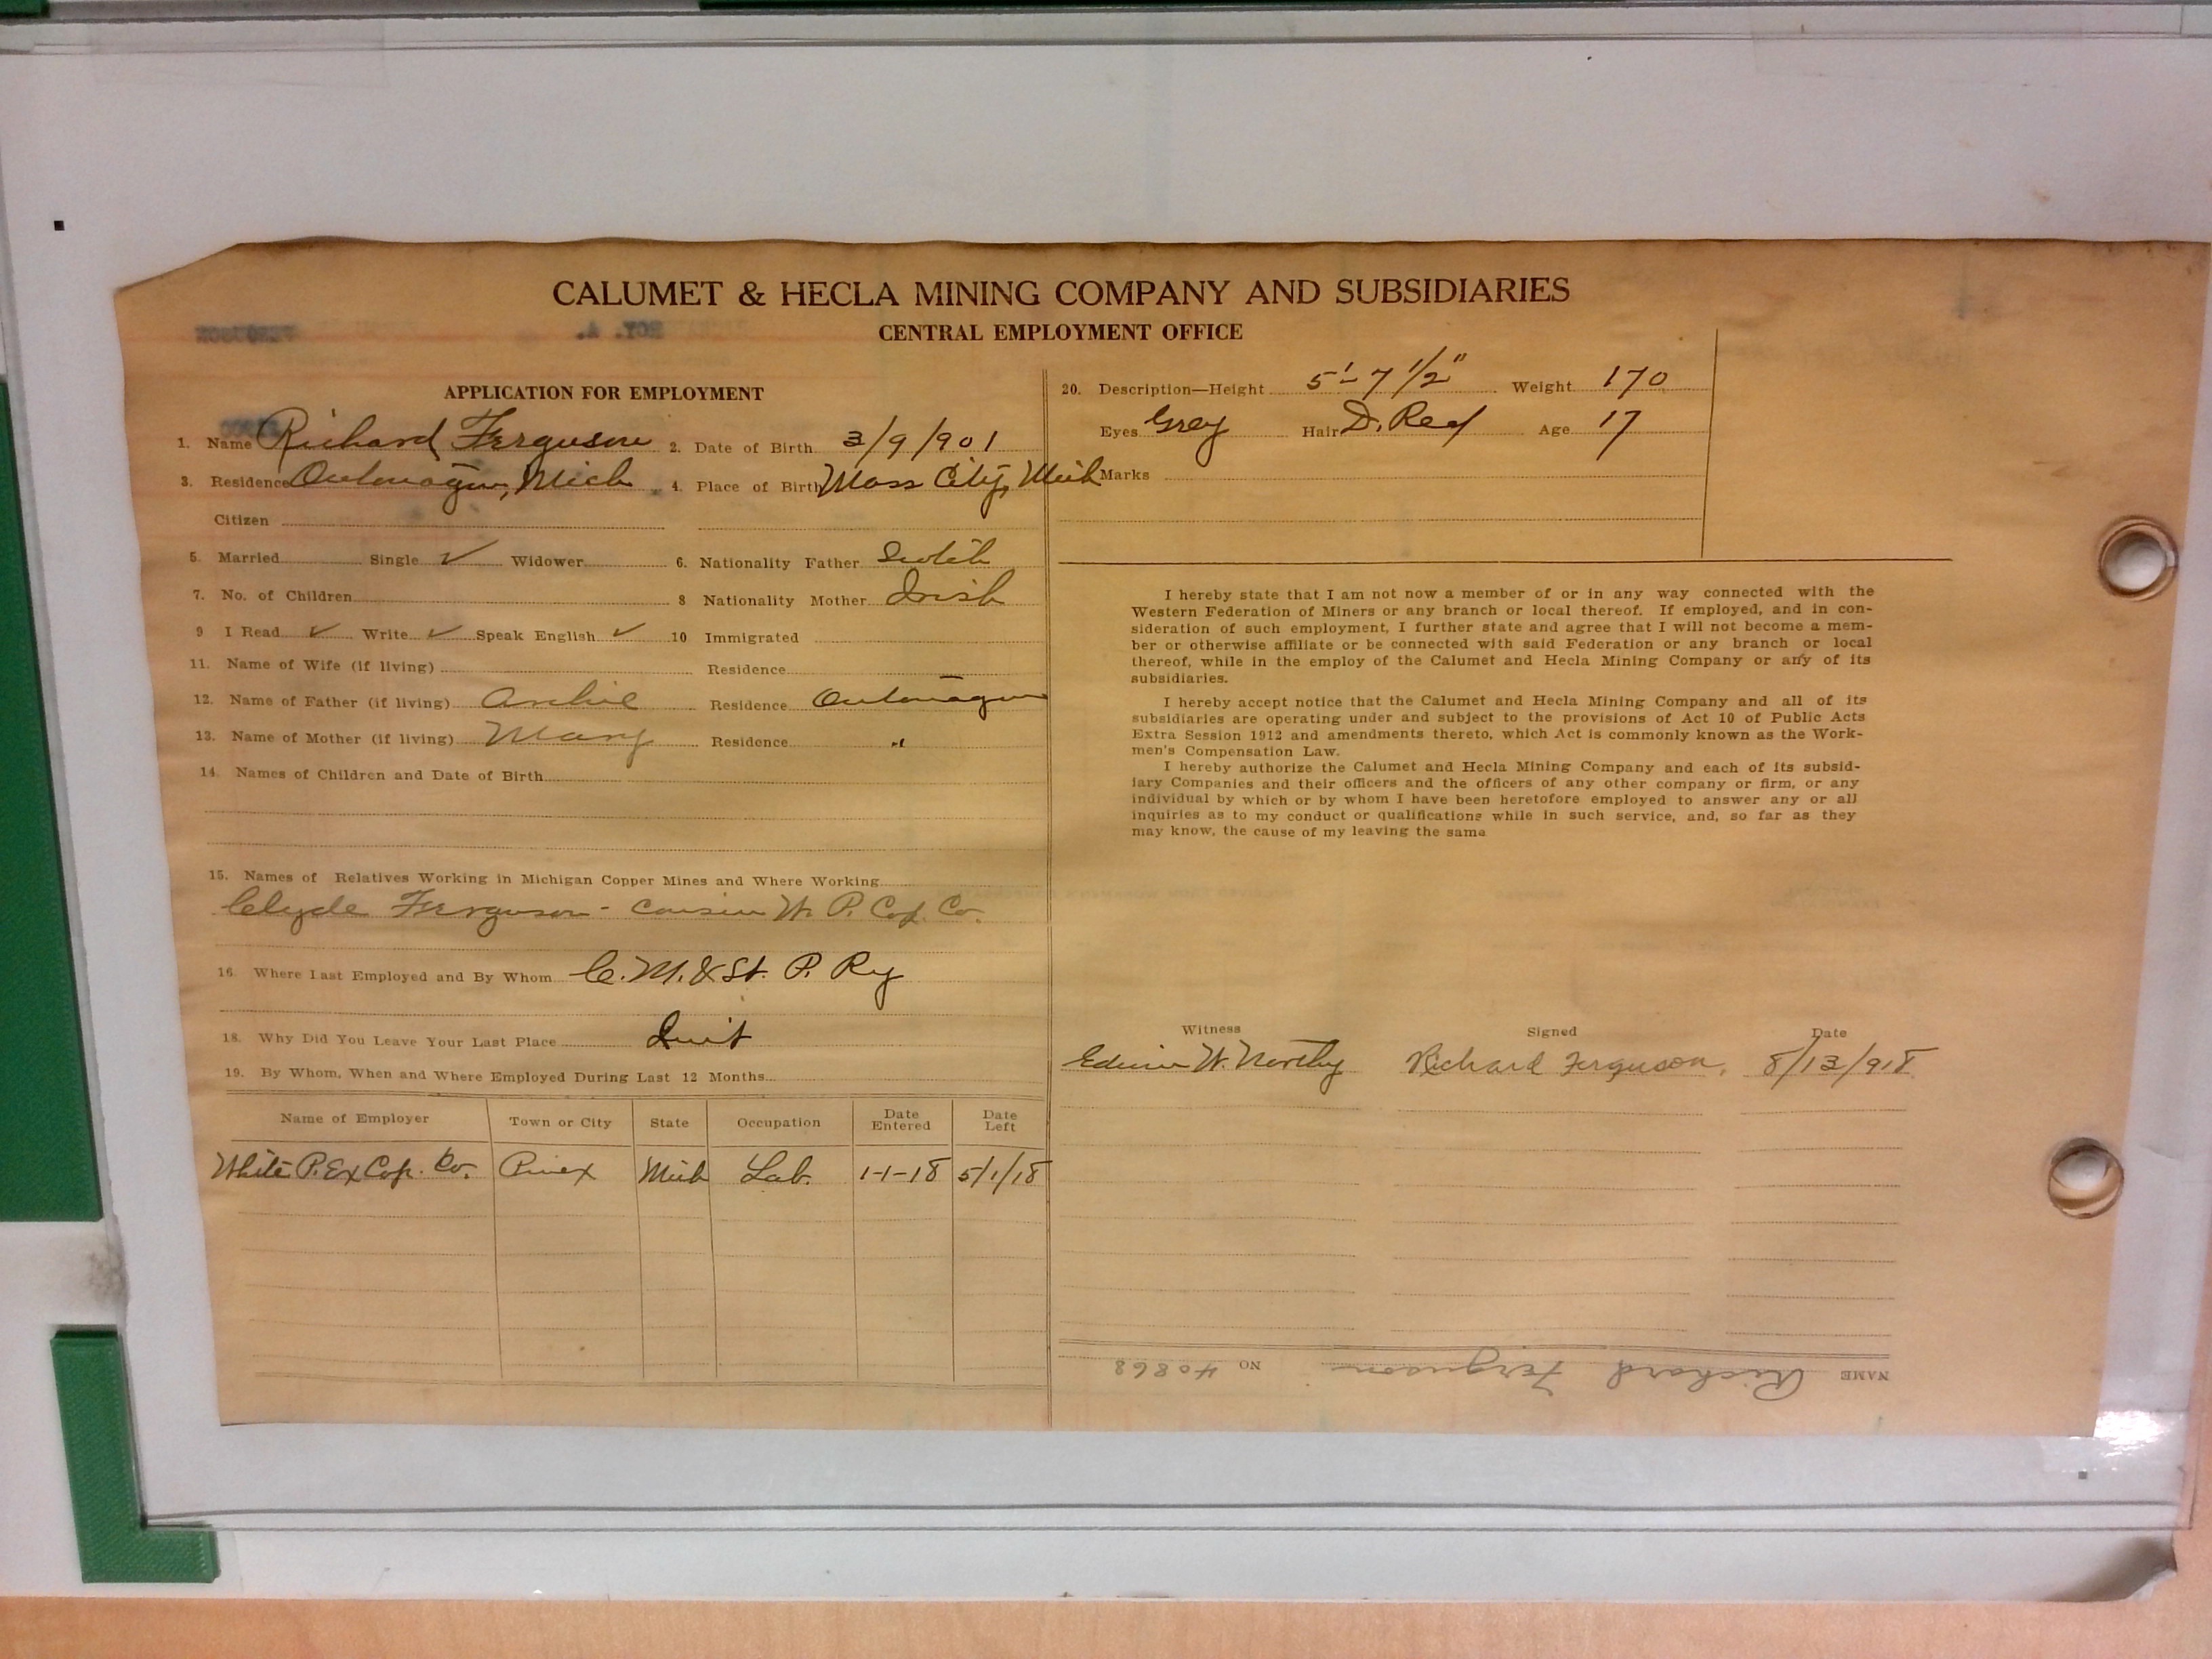 CALUMET & HECLA MINING COMPANY AND SUBSIDIARIES
CENTRAL EMPLOYMENT OFFICE
APPLICATION FOR EMPLOYMENT
1. Name Richard Ferguson 2. Date of Birth 3/9/901
3. Residence Ontonagon, Mich 4. Place of Birth Mass City, Mich
Citizen
5. Married Single ✓ Widower 6. Nationality Father Scotch
7. No. of Children 8 Nationality Mother Irish
9 I Read ✓ Write ✓ Speak English ✓ 10 Immigrated
11. Name of Wife (if living) Residence
12. Name of Father (if living) Archie Residence Ontonagon
13. Name of Mother (if living) Mary Residence "
14. Names of Children and Date of Birth
15. Names of Relatives Working in Michigan Copper Mines and Where Working
Clyde Ferguson - cousin W. P. Cop. Co.
16. Where Last Employed and By Whom C. M. & St. P. Ry
18. Why Did You Leave Your Last Place Quit
19. By Whom, When and Where Employed During Last 12 Months
Name of Employer Town or City State Occupation Date Entered Date Left
White P. Ex Cop. Co. Mich Lab. 1-1-18 5/1/18
20. Description—Height 5'-7 1/2" Weight 170
Eyes Grey Hair D. Red Age 17
Marks
I hereby state that I am not now a member of or in any way connected with the
Western Federation of Miners or any branch or local thereof. If employed, and in con-
sideration of such employment, I further state and agree that I will not become a mem-
ber or otherwise affiliate or be connected with said Federation or any branch or local
thereof, while in the employ of the Calumet and Hecla Mining Company or any of its
subsidiaries.
I hereby accept notice that the Calumet and Hecla Mining Company and all of its
subsidiaries are operating under and subject to the provisions of Act 10 of Public Acts
Extra Session 1912 and amendments thereto, which Act is commonly known as the Work-
men's Compensation Law.
I hereby authorize the Calumet and Hecla Mining Company and each of its subsid-
iary Companies and their officers and the officers of any other company or firm, or any
individual by which or by whom I have been heretofore employed to answer any or all
inquiries as to my conduct or qualifications while in such service, and, so far as they
may know, the cause of my leaving the same
Witness Signed Date
Edwin W. Northey Richard Ferguson. 8/13/918
NAME Richard Ferguson NO 40868